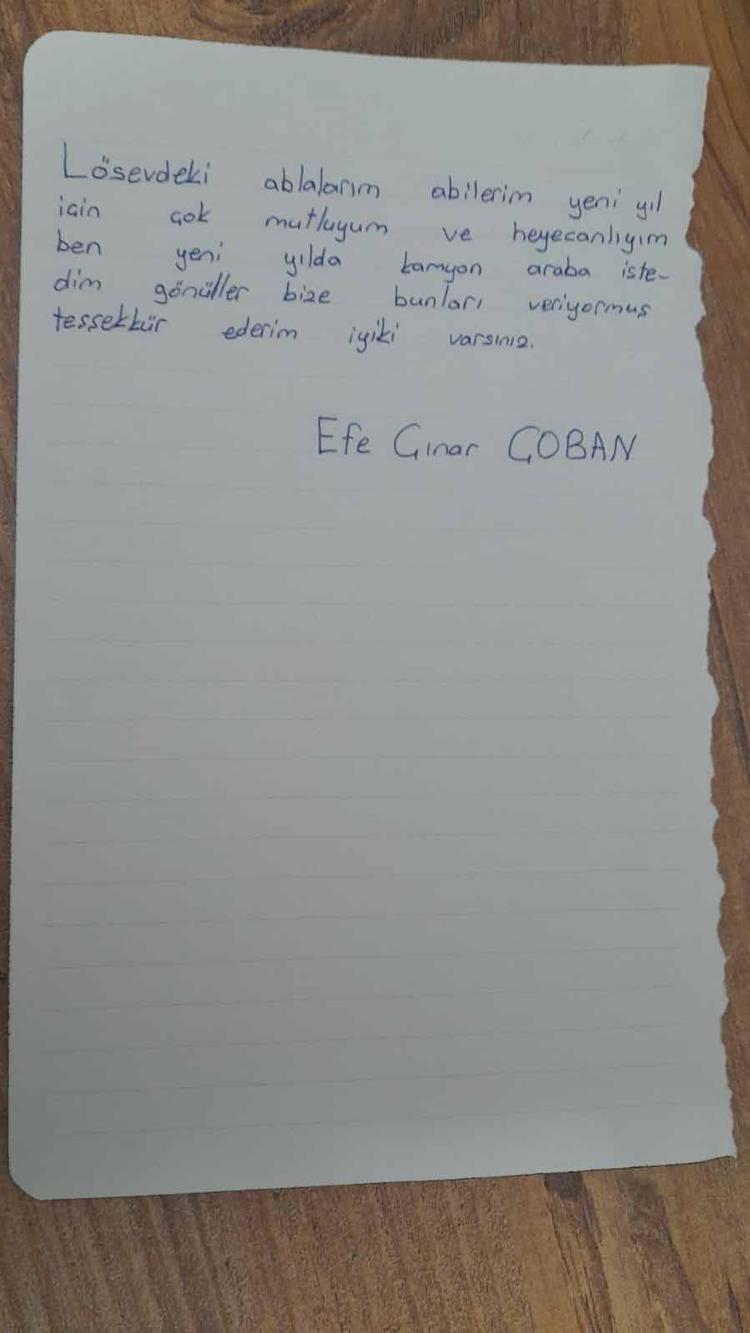 Lösevdeki ablalarım abilerim yeni yıl
için çok mutluyum ve heyecanlıyım
ben yeni yılda kamyon araba iste-
dim gönüller bize bunları veriyormuş
tessekkür ederim iyiki varsınız.
Efe Çınar ÇOBAN